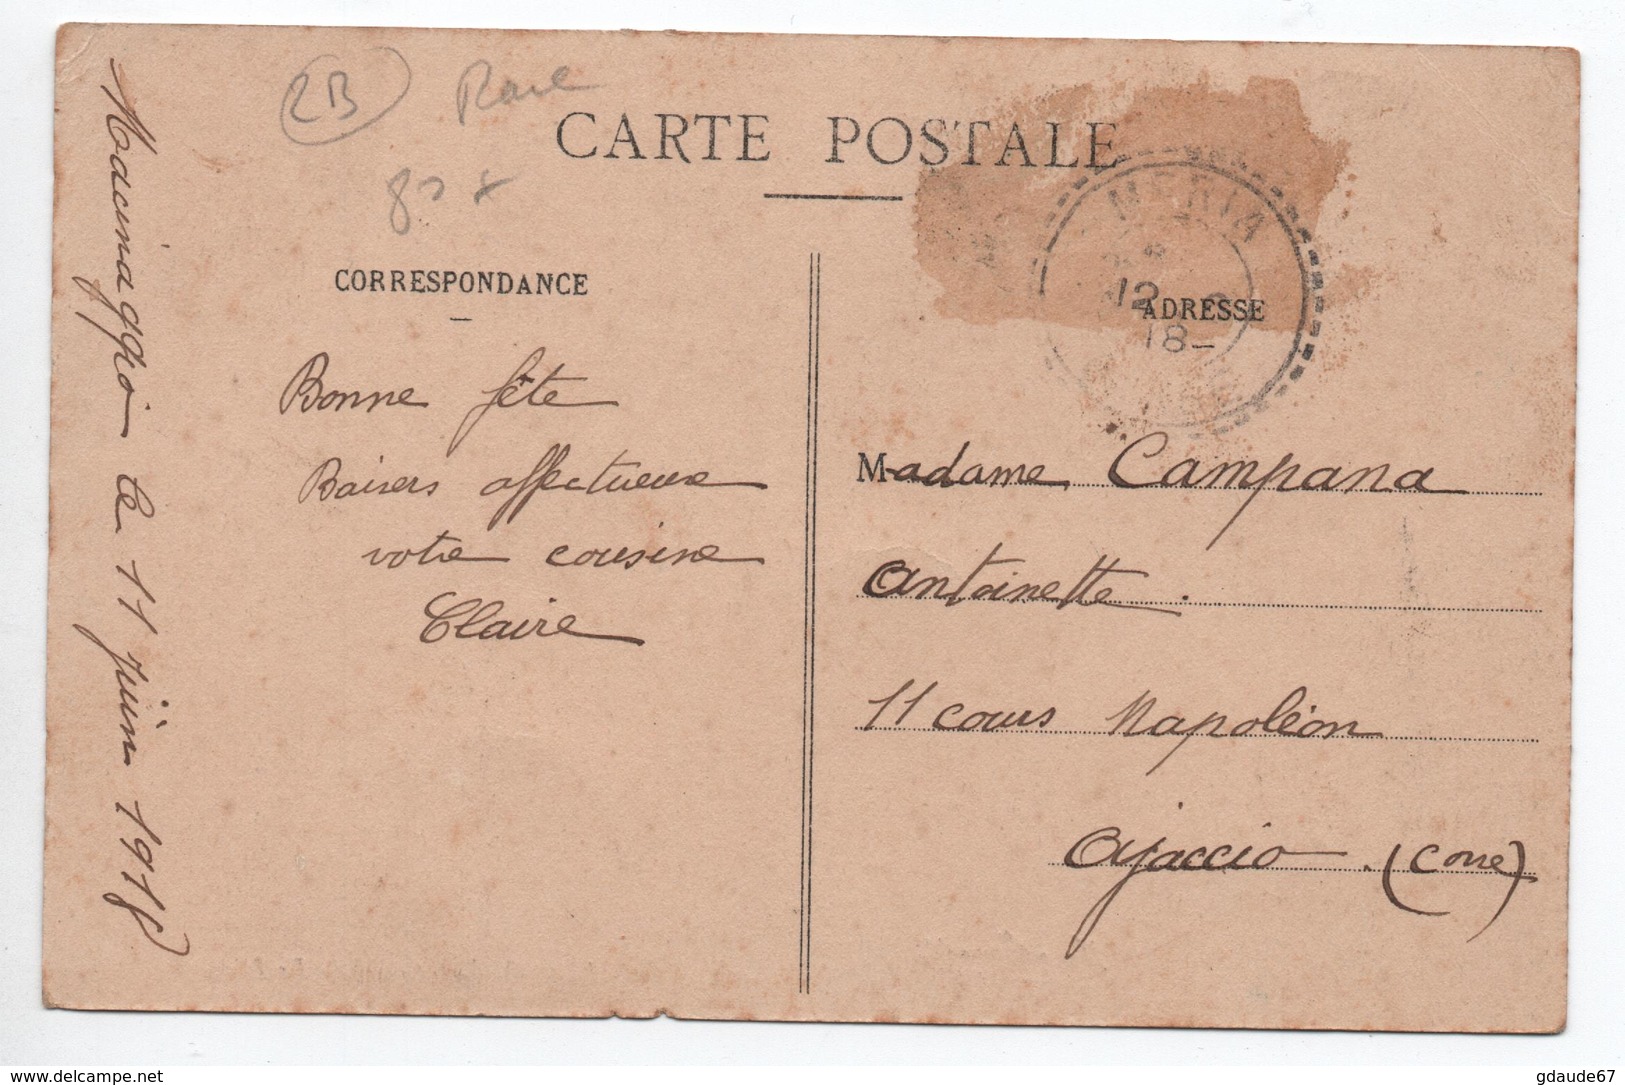 2B Rare
CARTE POSTALE
MERIA
12 - 6
18 -
CORRESPONDANCE
ADRESSE
Macinaggio le 11 juin 1918
Bonne fête
Baisers affectueux
votre cousine
Claire
Madame Campana
Antoinette.
11 cours Napoléon
Ajaccio. (Corse)
www.delcampe.net
gdaude67